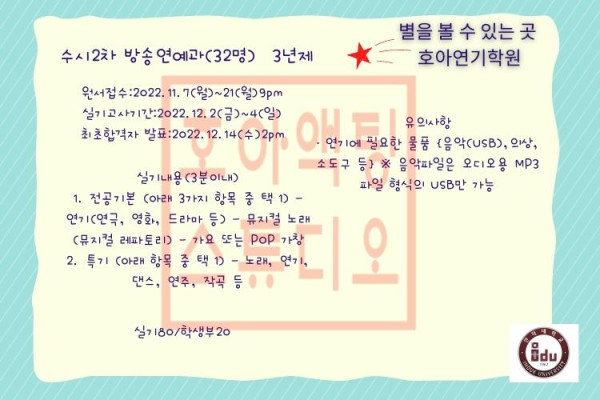 별을 볼 수 있는 곳
호아연기학원
수시2차 방송연예과(32명) 3년제
원서접수:2022.11.7(월)~21(월)9pm
실기고사기간:2022.12.2(금)~4(일)
최초합격자 발표:2022.12.14(수)2pm
실기내용(3분이내)
1. 전공기본 (아래 3가지 항목 중 택 1) -
연기(연극, 영화, 드라마 등) - 뮤지컬 노래
(뮤지컬 레파토리) - 가요 또는 POP 가창
2. 특기 (아래 항목 중 택 1) - 노래, 연기,
댄스, 연주, 작곡 등
실기80/학생부20
유의사항
· 연기에 필요한 물품 {음악(USB),의상,
소도구 등} ※ 음악파일은 오디오용 MP3
파일 형식의 USB만 가능
호아액팅
스튜디오
edu